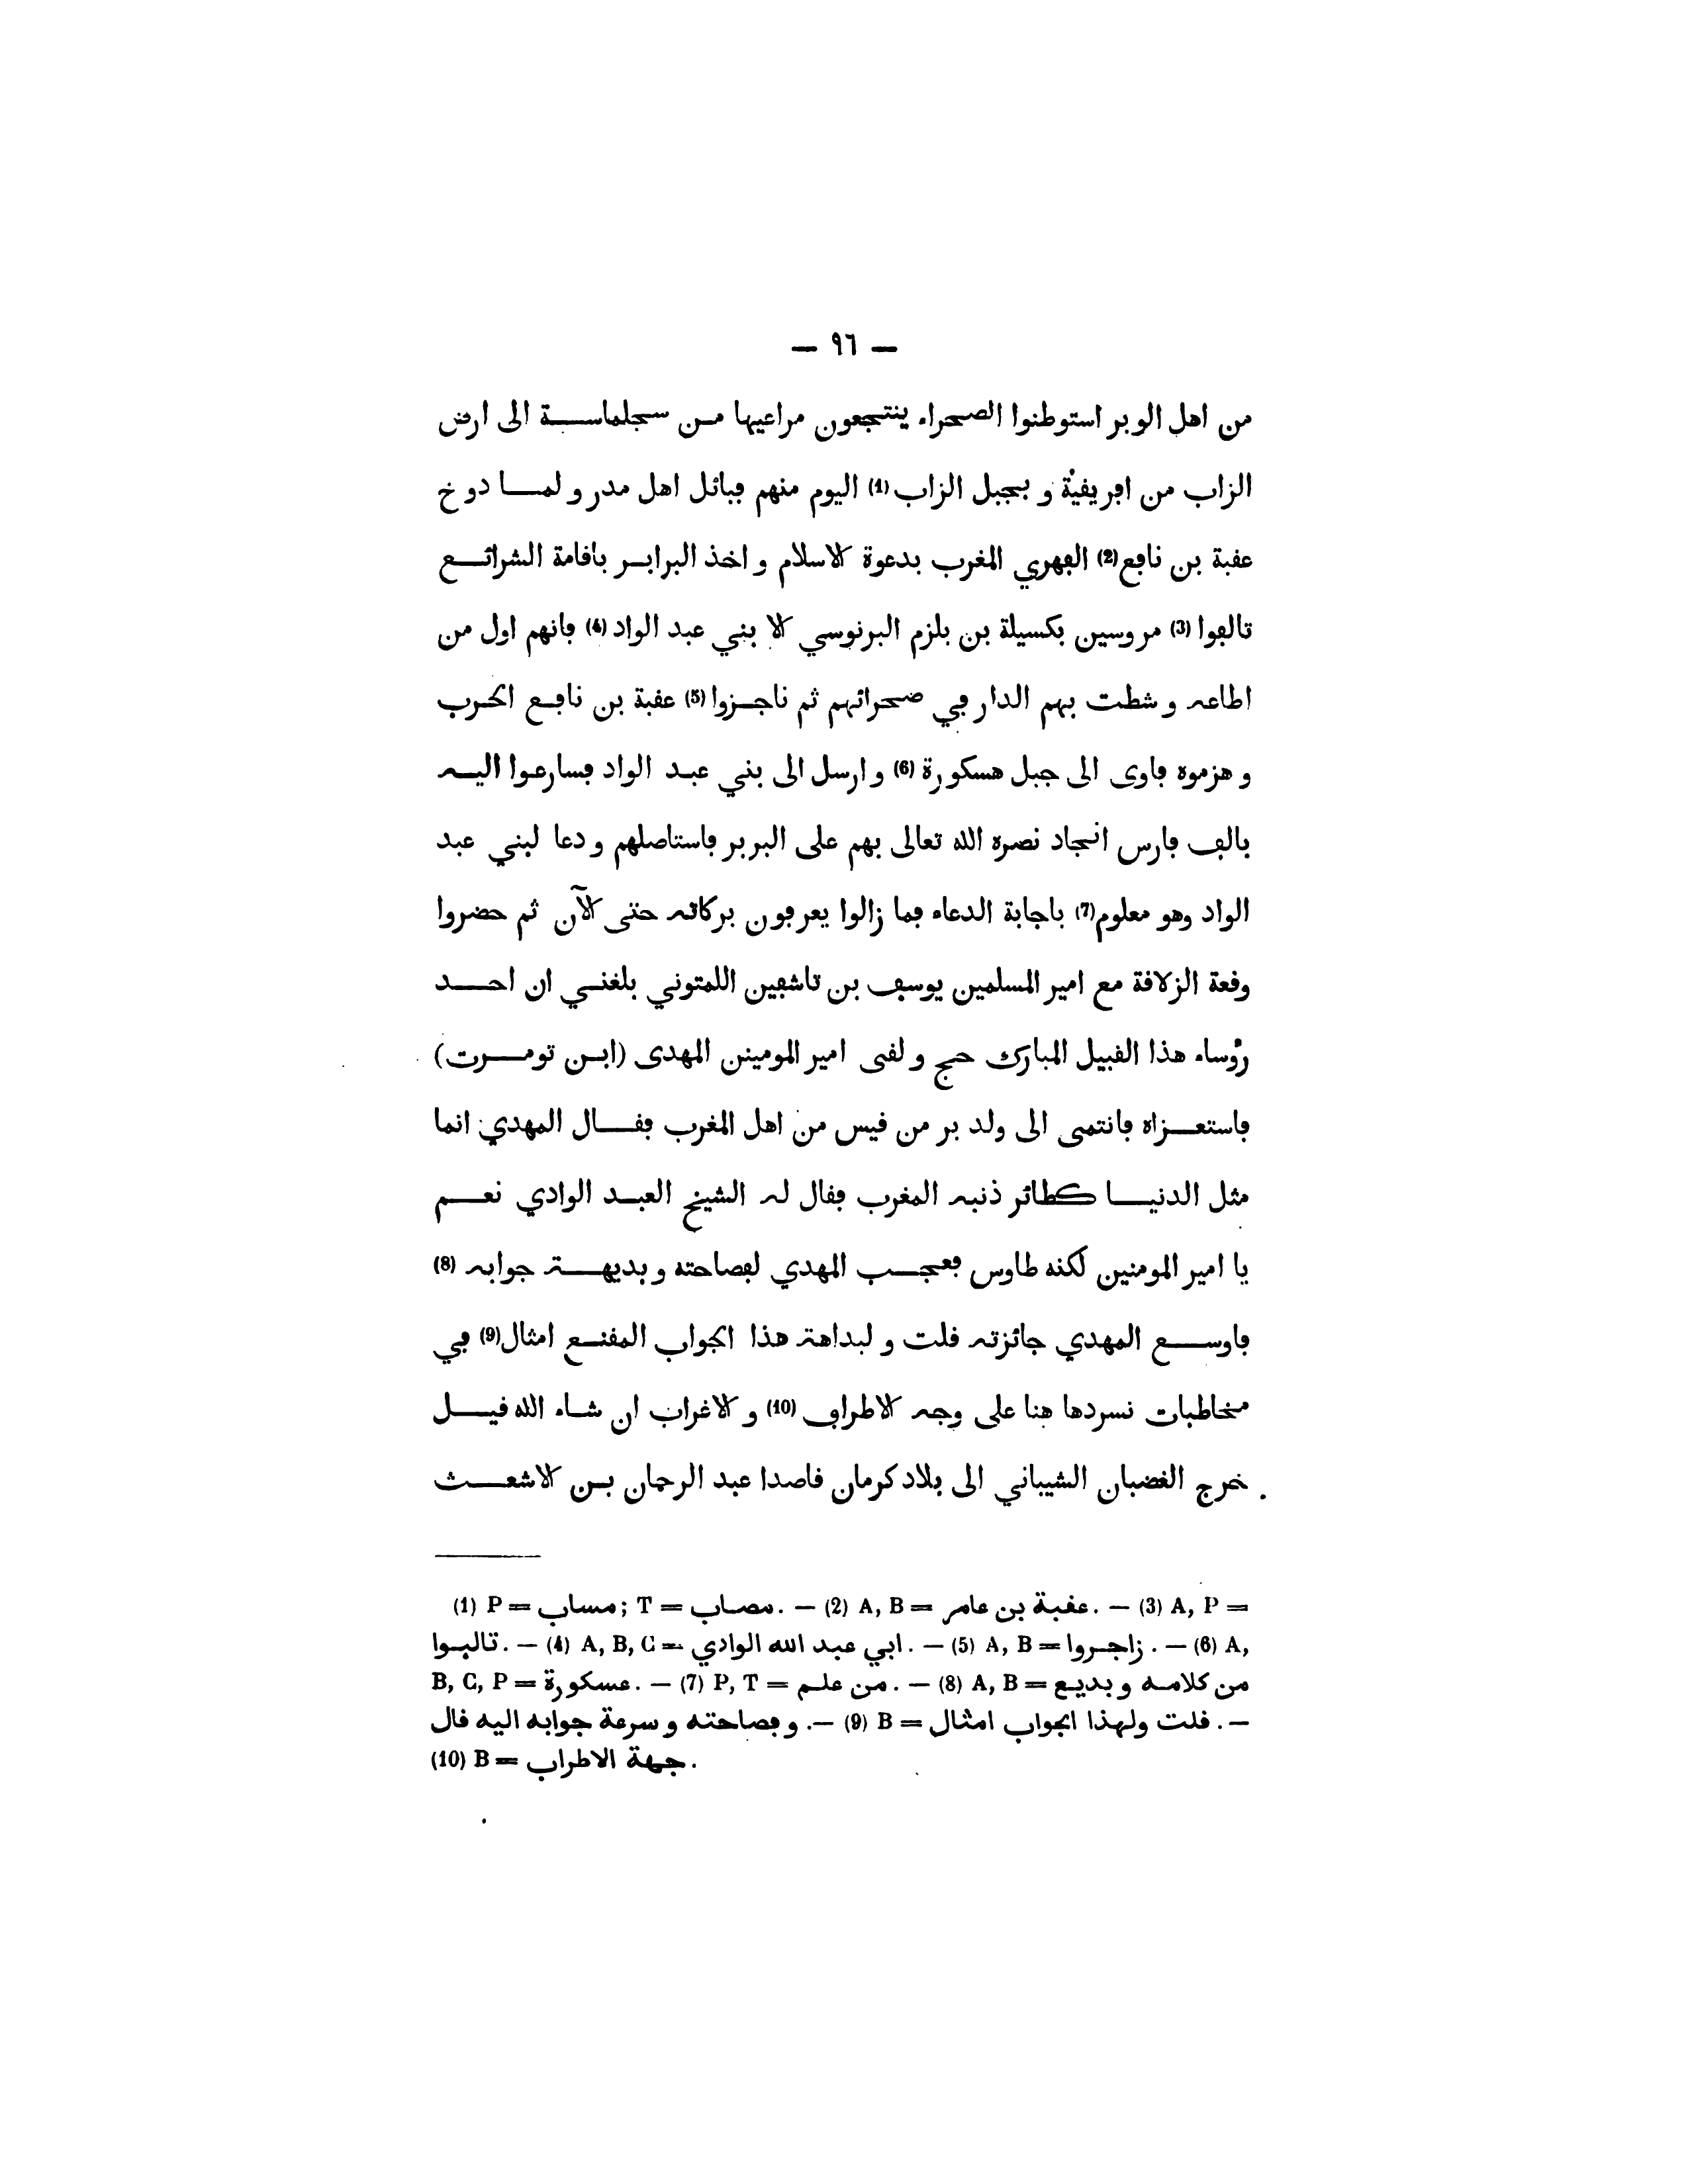 — ٩٦ —
من اهل الوبر استوطنوا الصحراء ينتجعون مراعيها مـن سجلماسـة الى ارض
الزاب من افريقية و بجبل الزاب (1) اليوم منهم قبائل اهل مدر و لمـا دوخ
عقبة بن نافع (2) الفهري المغرب بدعوة الاسلام و اخذ البرابـر باقامة الشرائـع
تالفوا (3) مروسين بكسيلة بن بلزم البرنوسي الا بني عبد الواد (4) فانهم اول من
اطاعه و شطت بهم الدار في صحرائهم ثم ناجـزوا (5) عقبة بن نافـع الحرب
و هزموه فاوى الى جبل هسكورة (6) و ارسل الى بني عبـد الواد فسارعوا اليـه
بالف فارس انجاد نصره الله تعالى بهم على البربر فاستاصلهم و دعا لبني عبد
الواد وهو معلوم (7) باجابة الدعاء فما زالوا يعرفون بركاته حتى الآن ثم حضروا
وقعة الزلاقة مع امير المسلمين يوسف بن تاشفين اللمتوني بلغنـي ان احـد
رؤساء هذا القبيل المبارك حج و لقى امير المومينن المهدى (ابـن تومـرت)
فاستعـزاه فانتمى الى ولد بر من قيس من اهل المغرب فقـال المهدي انما
مثل الدنيـا كطائر ذنبه المغرب فقال له الشيخ العبـد الوادي نعـم
يا امير المومنين لكنه طاوس فعجـب المهدي لفصاحته و بديهـة جوابه (8)
فاوسـع المهدي جائزته قلت و لبداهة هذا الجواب المقنـع امثال (9) في
مخاطبات نسردها هنا على وجه الاطراف (10) و الاغراب ان شـاء الله قيـل
خرج الغضبان الشيباني الى بلاد كرمان قاصدا عبد الرحمان بـن الاشعـث
(1) P = مساب ; T = مصاب. — (2) A, B = عقبة بن عامر. — (3) A, P =
تالبوا. — (4) A, B, C = ابي عبد الله الوادي. — (5) A, B = زاجروا. — (6) A,
B, C, P = عسكورة. — (7) P, T = من علم. — (8) A, B = من كلامه و بديع
و فصاحته و سرعة جوابه اليه قال. — (9) B = قلت ولهذا الجواب امثال. —
(10) B = جهة الاطراب.